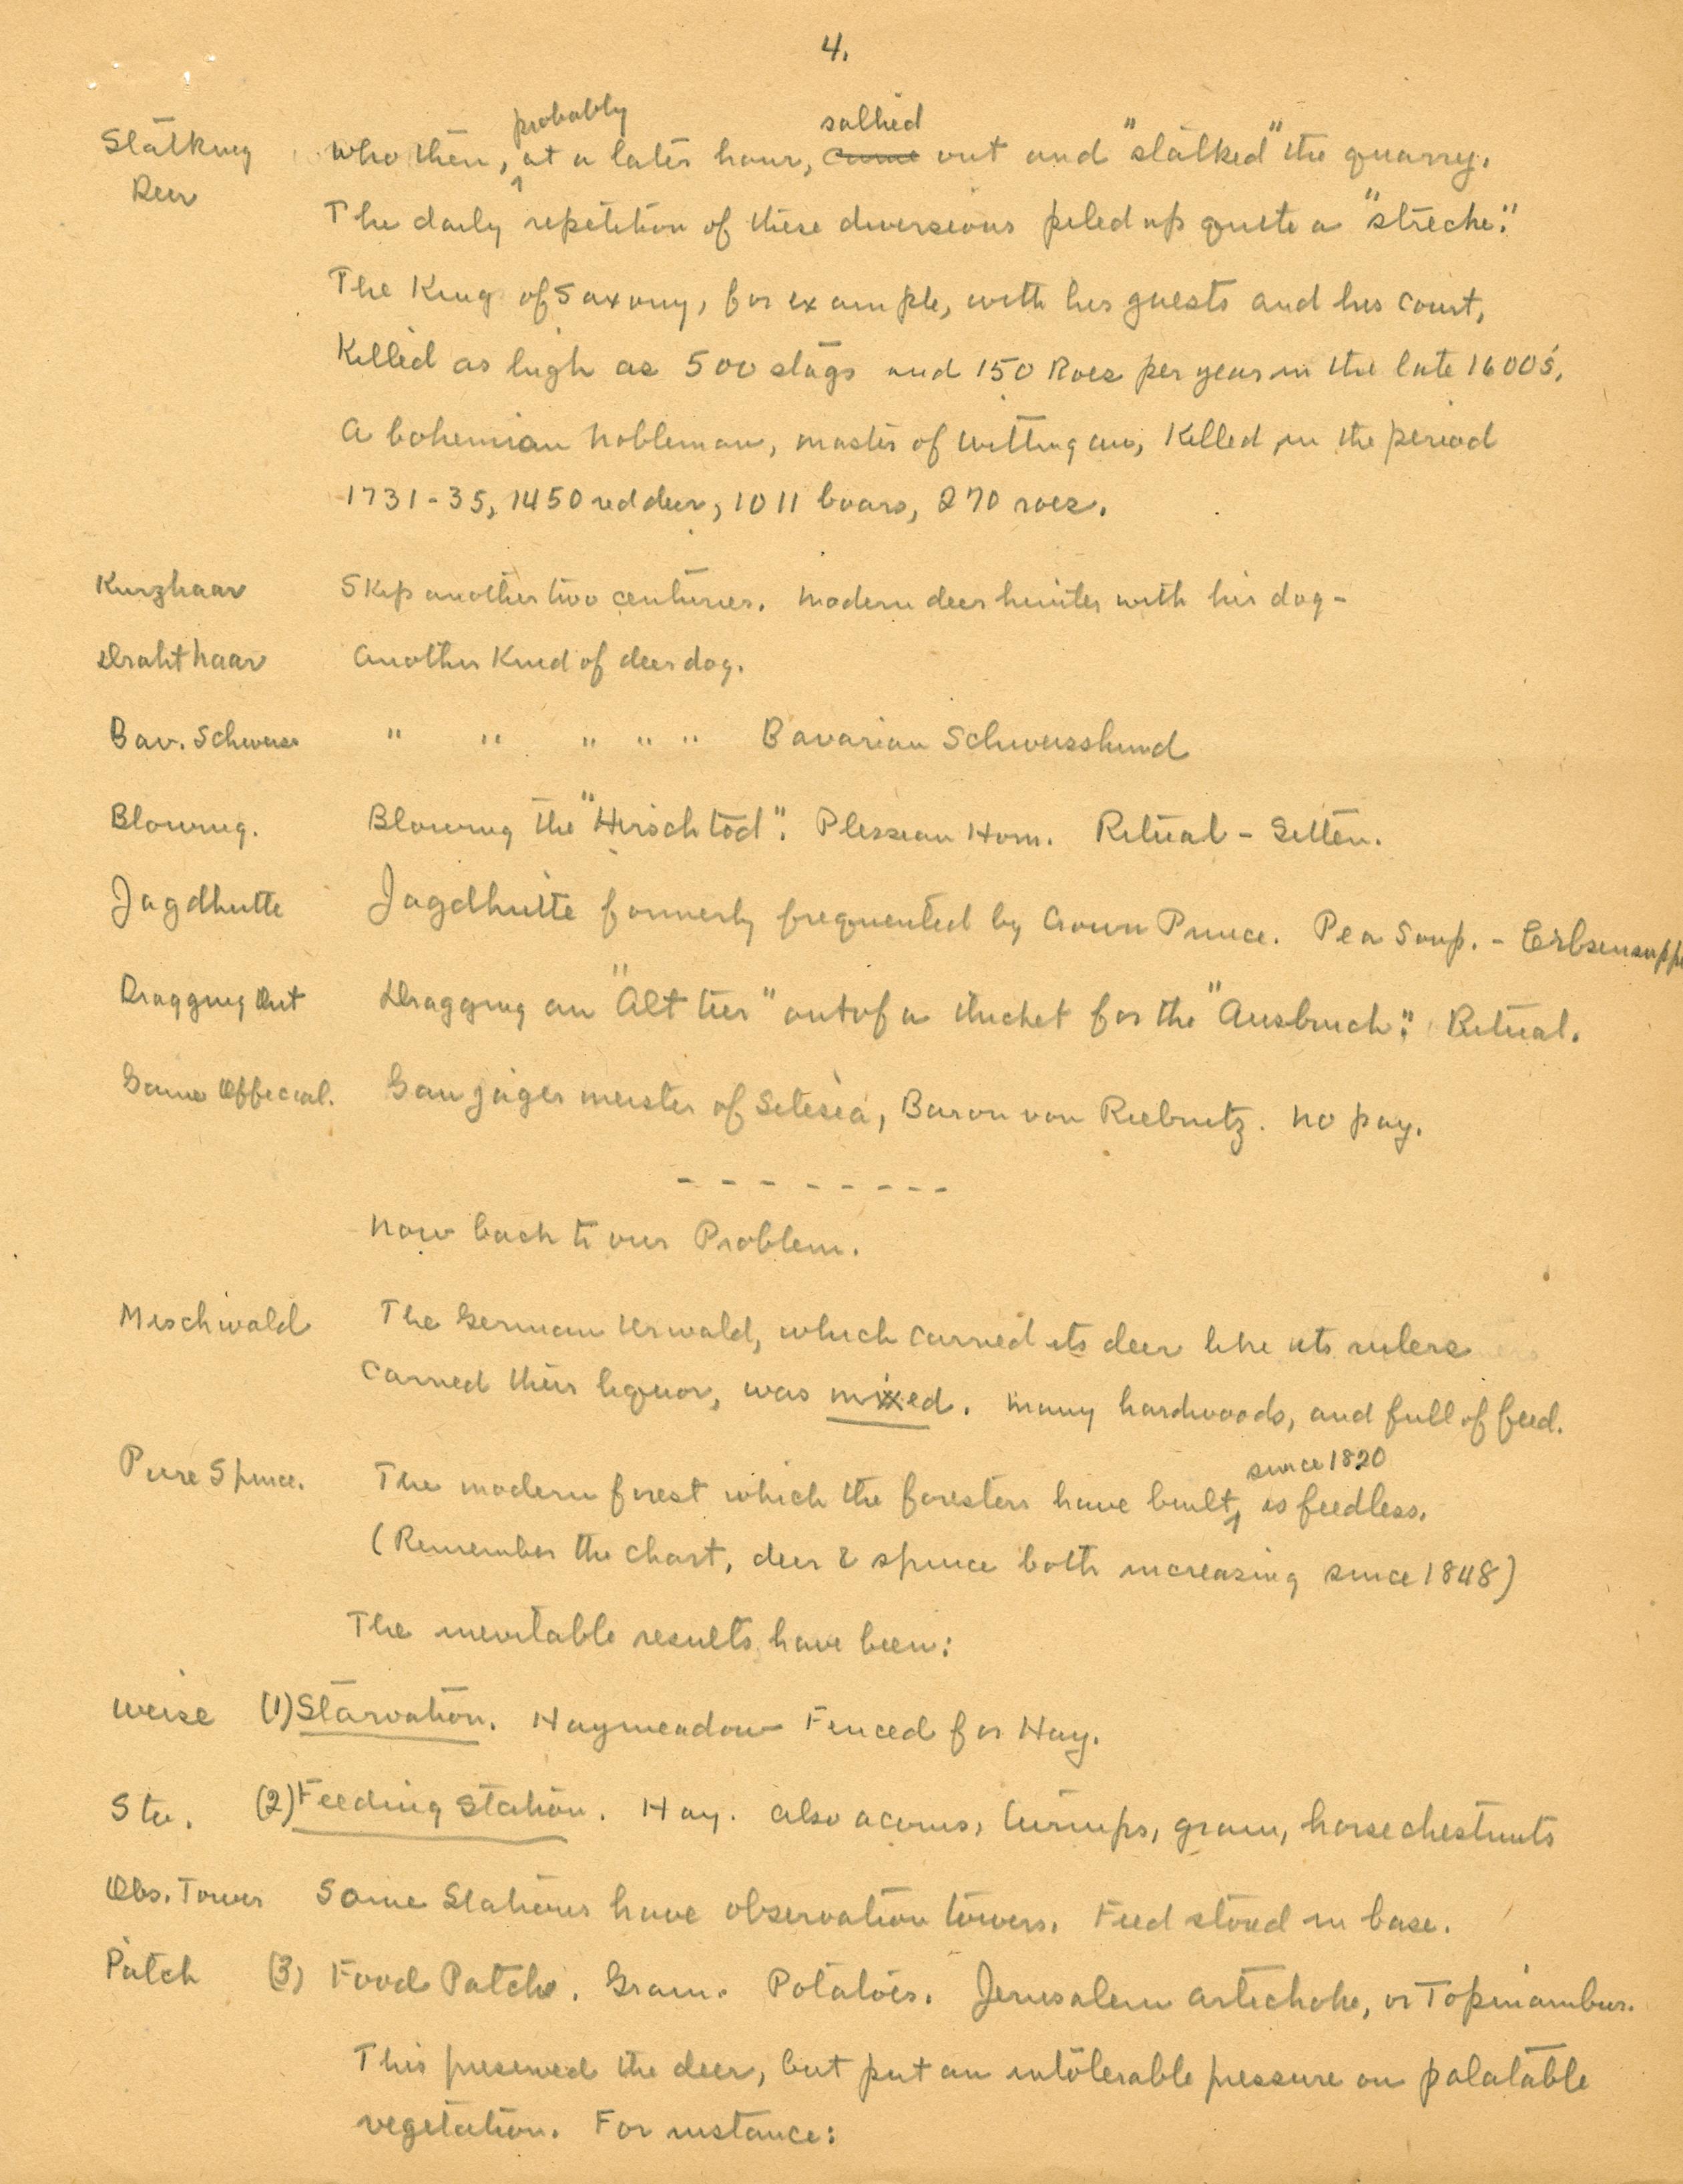 4.
probably sallied
Stalking who then, at a later hour, came out and "stalked" the quarry.
Deer
The daily repetition of these diversions piled up quite a "strecke".
The King of Saxony, for example, with his guests and his court,
Killed as high as 500 stags and 150 Roes per year in the late 1600's.
A bohemian nobleman, master of Wittingau, killed in the period
1731-35, 1450 red deer, 1011 boars, 270 roes.
Kurzhaar Skip another two centuries. Modern deer hunter with his dog-
Drahthaar Another Kind of deer dog.
Bav. Schweiss " " " " " Bavarian Schweisshund
Blowing. Blowing the "Hirsch tod". Plessian Horn. Ritual - Sitten.
Jagdhutte Jagdhutte formerly frequented by Crown Prince. Pea Soup. - Erbsensuppe
Dragging Out Dragging an "Alt tier" out of a thicket for the "Ausbruch". Ritual.
Game Official. Gaujägermeister of Silesia, Baron von Riebnitz. No pay.
- - - - - - - - -
Now back to our Problem.
Mischwald The German Urwald, which carried its deer like its rulers
carried their liquor, was mixed. Many hardwoods, and full of feed.
since 1820
Pure Spruce. The modern forest which the foresters have built, is feedless.
(Remember the chart, deer & spruce both increasing since 1848)
The inevitable results have been:
Weise (1) Starvation. Haymeadow Fenced for Hay.
Sta. (2) Feeding Station. Hay. also acorns, turnips, grain, horsechestnuts
Obs. Tower Some Stations have observation towers. Feed stored in base.
Patch (3) Food Patch. Grain. Potatoes. Jerusalem artichoke, or Topinambur.
This preserved the deer, but put an intolerable pressure on palatable
vegetation. For instance: